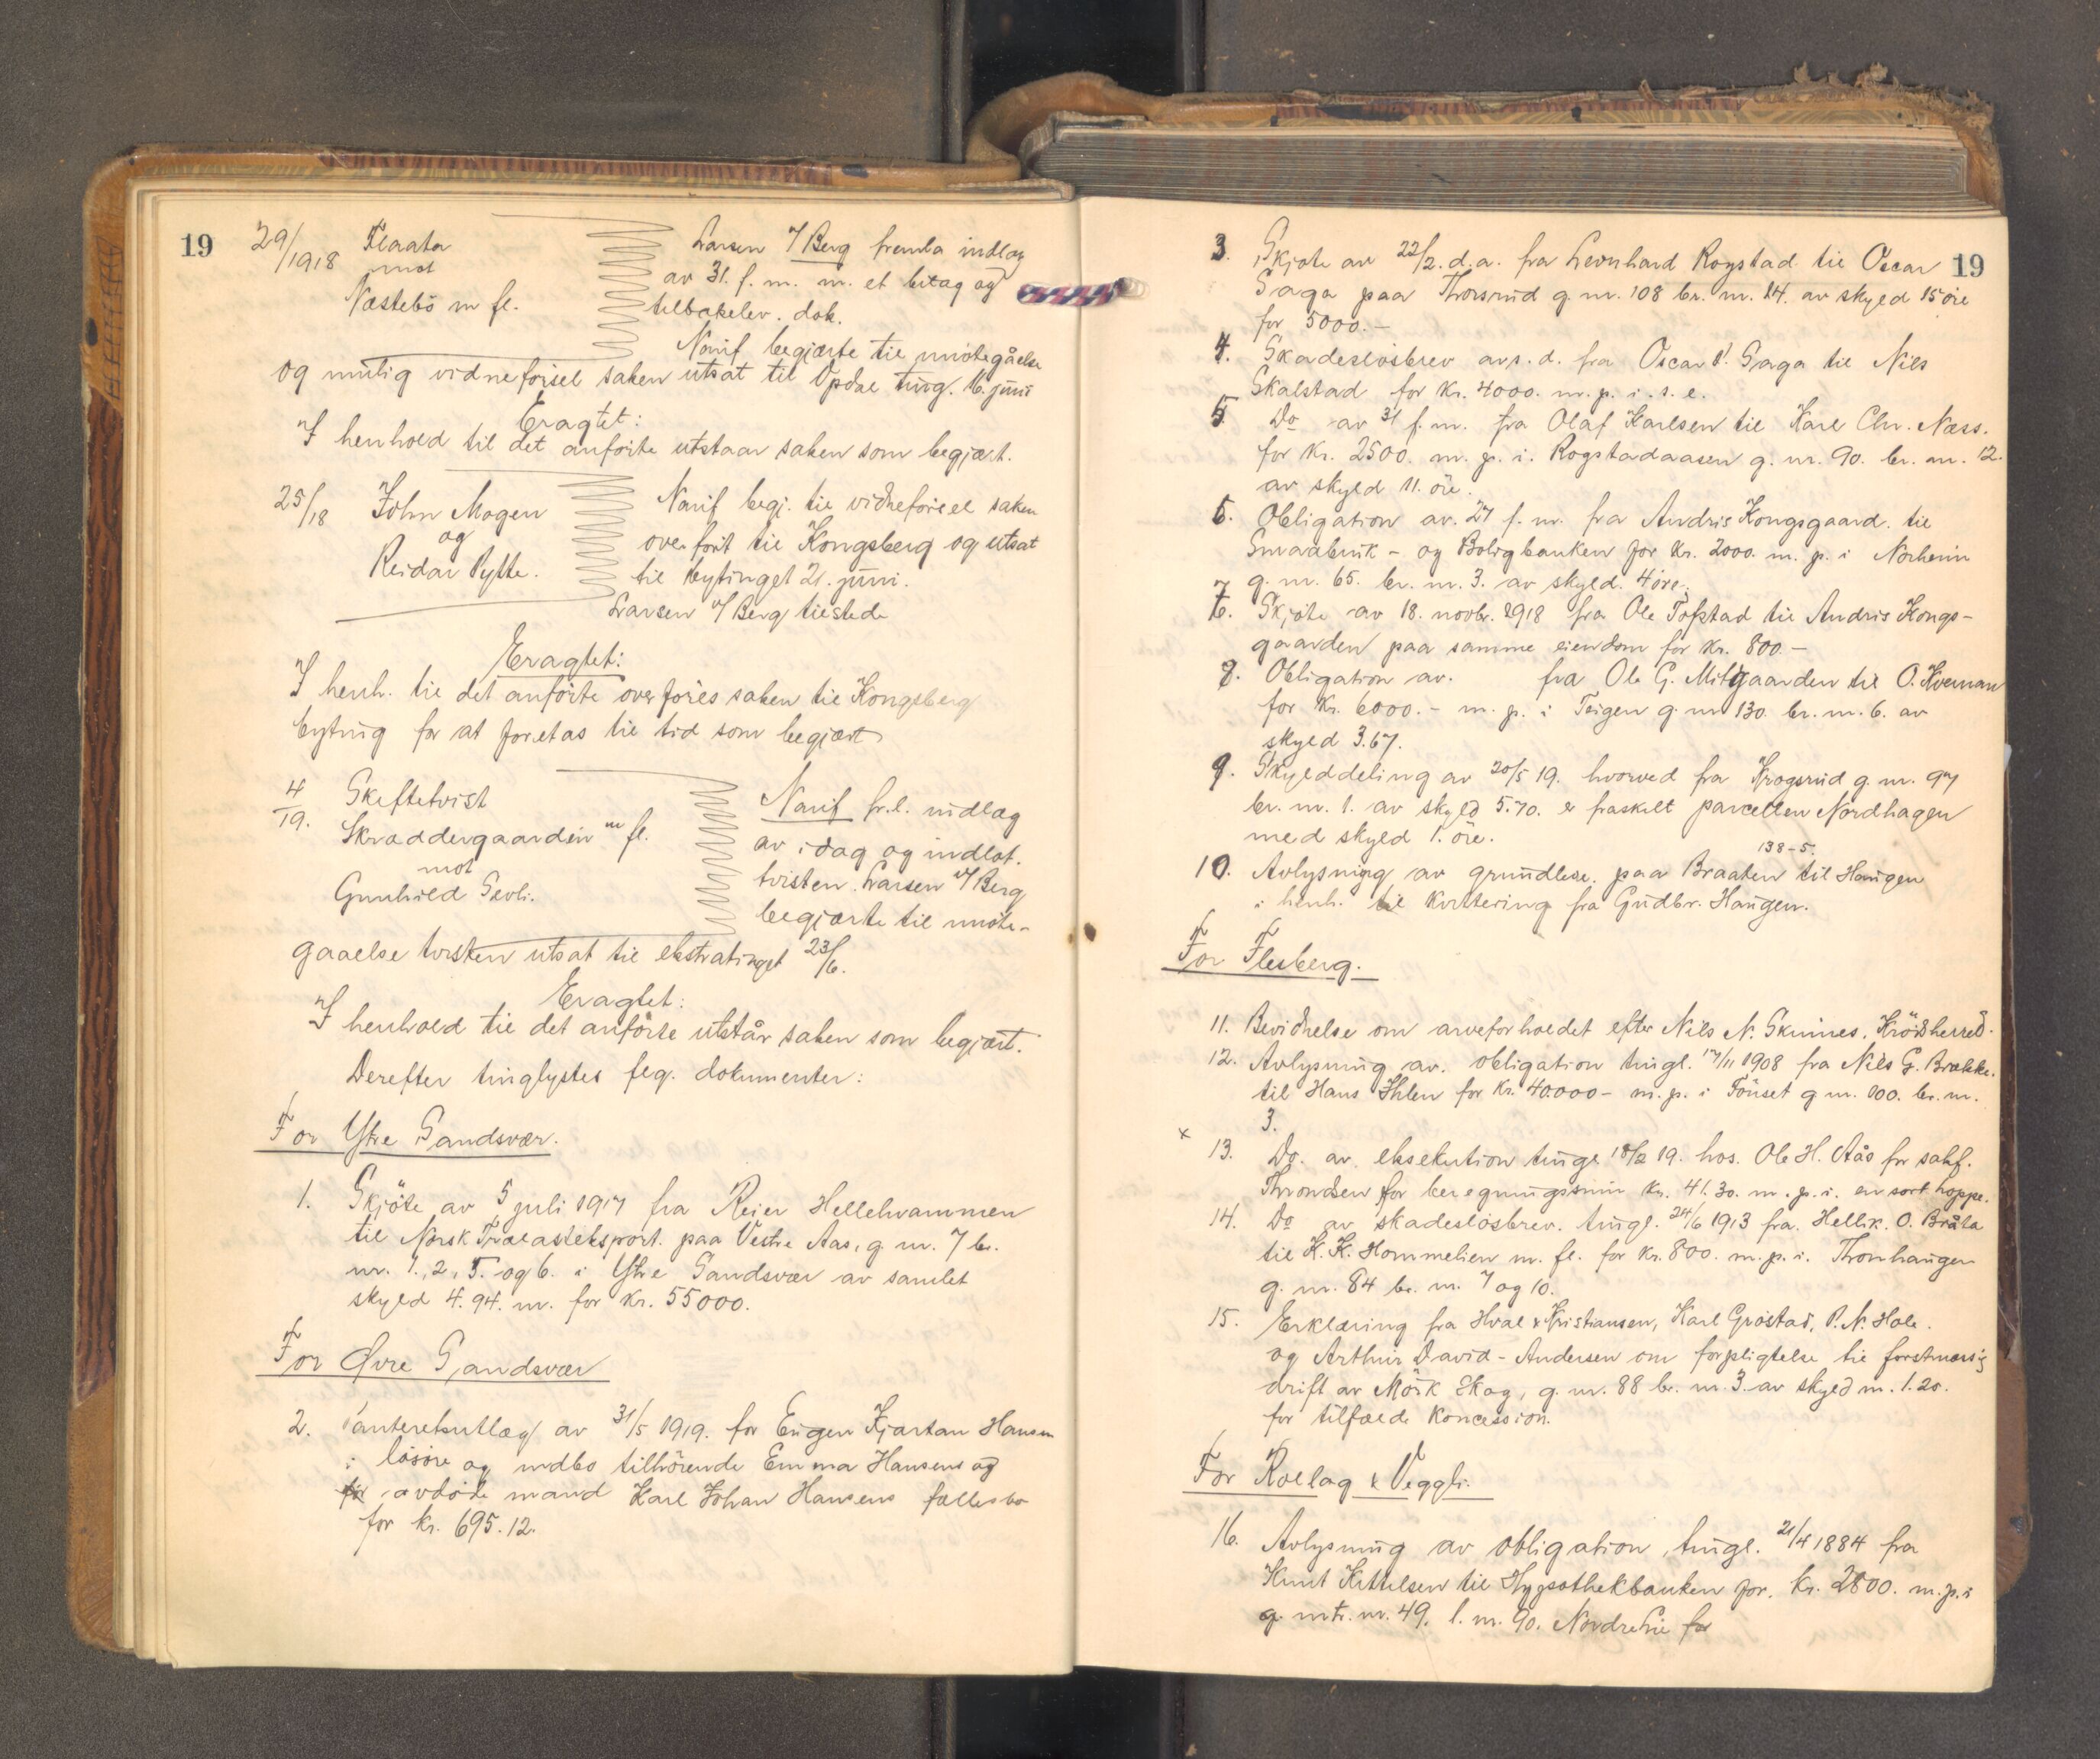 19
29/1918 Flaata
mot
Næstebö m fl.
Larsen v/ Berg fremla indlæg
av 31. f. m. m. et bilag og
tilbakelev. dok.
Narif begjærte til imötegåelse
og mulig vidneförsel saken utsat til Opdal ting. 16. juni
Eragtet:
I henhold til det anförte utstaar saken som begjært.
25/18 John Mogen
og
Reidar Pytte.
Narif begj. til vidneförsel saken
overfört til Kongsberg og utsat
til bytinget 21. juni.
Larsen v/ Berg tilstede
Eragtet:
I henh. til det anförte overföres saken til Kongsberg
byting for at foretas til tid som begjært
4/19. Skiftetvist
Skraddergaarden m fl.
mot
Gunhild Sevli.
Narif fr.l. indlæg
av idag og indlot.
tvisten. Larsen v/ Berg
begjærte til imöte-
gaaelse tvisten utsat til ekstratinget 23/6.
Eragtet:
I henhold til det anförte utstår saken som begjært.
Derefter tinglystes følg. dokumenter:
For Ytre Sandsvær.
1. Skjöte av 5 juli 1917 fra Reier Hellehvammen
til Norsk Trælasteksport. paa Vestre Aas, g. nr. 7 br.
nr. 1., 2, 5. og 6. i Ytre Sandsvær av samlet
skyld 4.94. m. for kr. 55000.
For Övre Sandsvær
2. Panteretsutlæg av 31/5 1919. for Eugen Kjartan Hansen
i lösöre og indbo tilhörende Emma Hansens og
avdöde mand Karl Johan Hansens fællesbo
for kr. 695.12.
19
3. Skjöte av 22/2. d.a. fra Leonhard Rogstad til Oscar
Saga paa Thorsrud g. nr. 108 br. nr. 14. av skyld 15 öre
for 5000.-
4. Skadeslösbrev avs. d. fra Oscar Saga til Nils
Skalstad for kr. 4000. m. p. i. s. e.
5. Do av 31 f. m. fra Olaf Karlsen til Karl Chr. Næss.
for kr. 2500. m. p. i. Rogstadaasen g. nr. 90. br. nr. 12.
av skyld 11. öre.
6. Obligation av. 27 f. m. fra Andris Kongsgaard. til
Smaabruk- og Boligbanken for kr. 2000. m. p. i Norheim
g. nr. 65. br. nr. 3. av skyld. 4 öre.
7. Skjöte av 18. novbr. 1918 fra Ole Tofstad til Andris Kongs-
gaarden paa samme eiendom for kr. 800.-
8. Obligation av. fra Ole G. Mitgaarden til O. Kvernan
for kr. 6000.- m. p. i Teigen g. nr 130. br. nr. 6. av
skyld 3.67.
9. Skylddeling av 20/5 19. hvorved fra Krogsrud g. nr. 97
br. nr. 1. av skyld 5.70. er fraskilt parcellen Nordhagen
med skyld 1. öre.
138-5.
10. Avlysning av grundlese. paa Braaten til Haugen
i henh. til kvittering fra Gudbr. Haugen.
For Flesberg.
11. Bevidnelse om arveforholdet efter Nils N. Skinnes, Krödsherred.
12. Avlysning av. obligation tingl. 17/11 1908 fra Nils G. Brække.
til Hans Ihlen for kr. 40.000- m. p. i Fönset g nr. 100. br. nr.
3.
x 13. Do. av eksekution tingl 18/2 19. hos. Ole H. Aås for sakf.
Throndsen for beregningssum kr. 41.30. m. p. i. en sort hoppe.
14. Do av skadeslösbrev. tingl. 24/6 1913 fra. Hellik. O. Bråta
til K. K. Hommelien m. fl. for kr. 800. m. p. i. Thronhaugen
g. nr. 84 br. nr. 7 og 10.
15. Erklæring fra Hval & Kristiansen, Karl Gröstad, P. N. Hole.
og Arthur David-Andersen om forpligtelse til forstmæssig
drift av Mörk Skog, g. nr. 88 br. nr. 3. av skyld m. 1.20.
for tilfælde koncession.
For Rollag & Veggli.
16. Avlysning av obligation, tingl. 21/4 1884 fra
Knut Kittilsen til Hypothekbanken for. kr. 2800. m. p. i
g. mtr. nr. 49. l. nr. 90. Nordre for